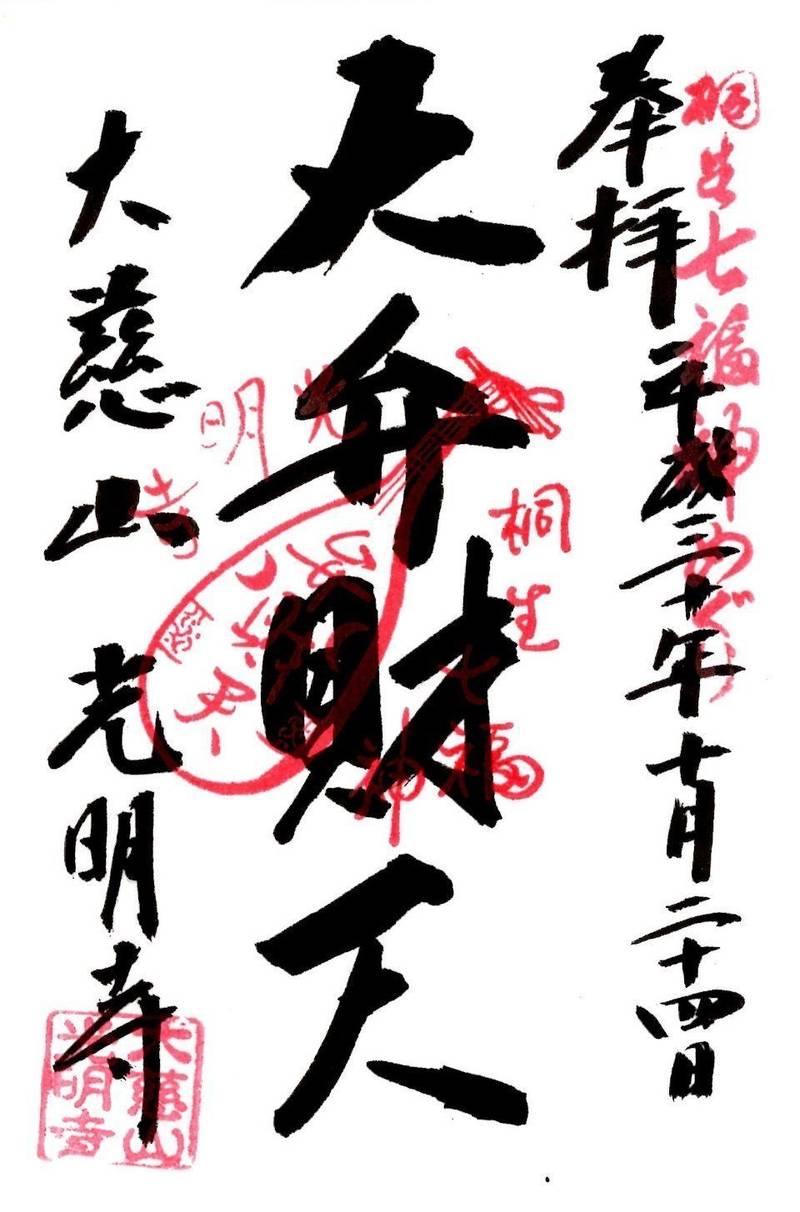 桐生七福神めぐり
奉拝 平成三十年十月二十四日
大弁財天
桐生七福神
光明寺
大慈山 光明寺
大慈山
光明寺